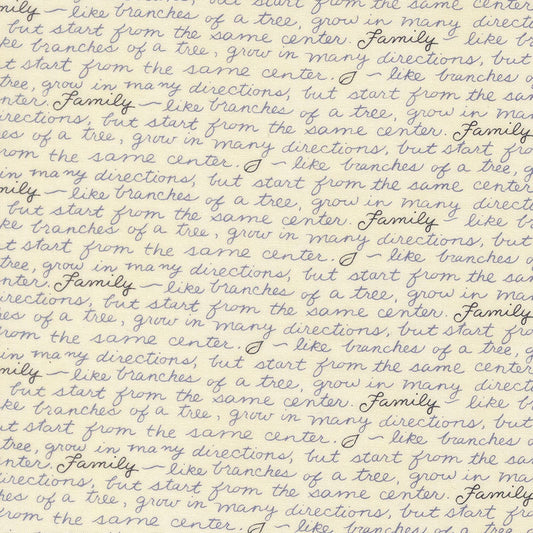 in many directions, but start from the same center
mily ~ like branches of a tree, grow in many directi
but start from the same center. Family ~ like b
ke branches of a tree, grow in many directions, but
t start from the same center. ~ like branches o
tree, grow in many directions, but start from the sa
nter. Family ~ like branches of a tree, grow in ma
irections, but start from the same center. Family
es of a tree, grow in many directions, but start fro
rom the same center. ~ like branches of a tree, g
in many directions, but start from the same center
mily ~ like branches of a tree, grow in many directi
but start from the same center. Family ~ like b
ke branches of a tree, grow in many directions, but
t start from the same center. ~ like branches o
tree, grow in many directions, but start from the sa
nter. Family ~ like branches of a tree, grow in ma
irections, but start from the same center. Family
es of a tree, grow in many directions, but start fro
rom the same center. ~ like branches of a tree, g
in many directions, but start from the same center
mily ~ like branches of a tree, grow in many directi
but start from the same center. Family ~ like b
ke branches of a tree, grow in many directions, but
t start from the same center. ~ like branches o
tree, grow in many directions, but start from the sa
nter. Family ~ like branches of a tree, grow in ma
irections, but start from the same center. Family
es of a tree, grow in many directions, but start fro
rom the same center. ~ like branches of a tree